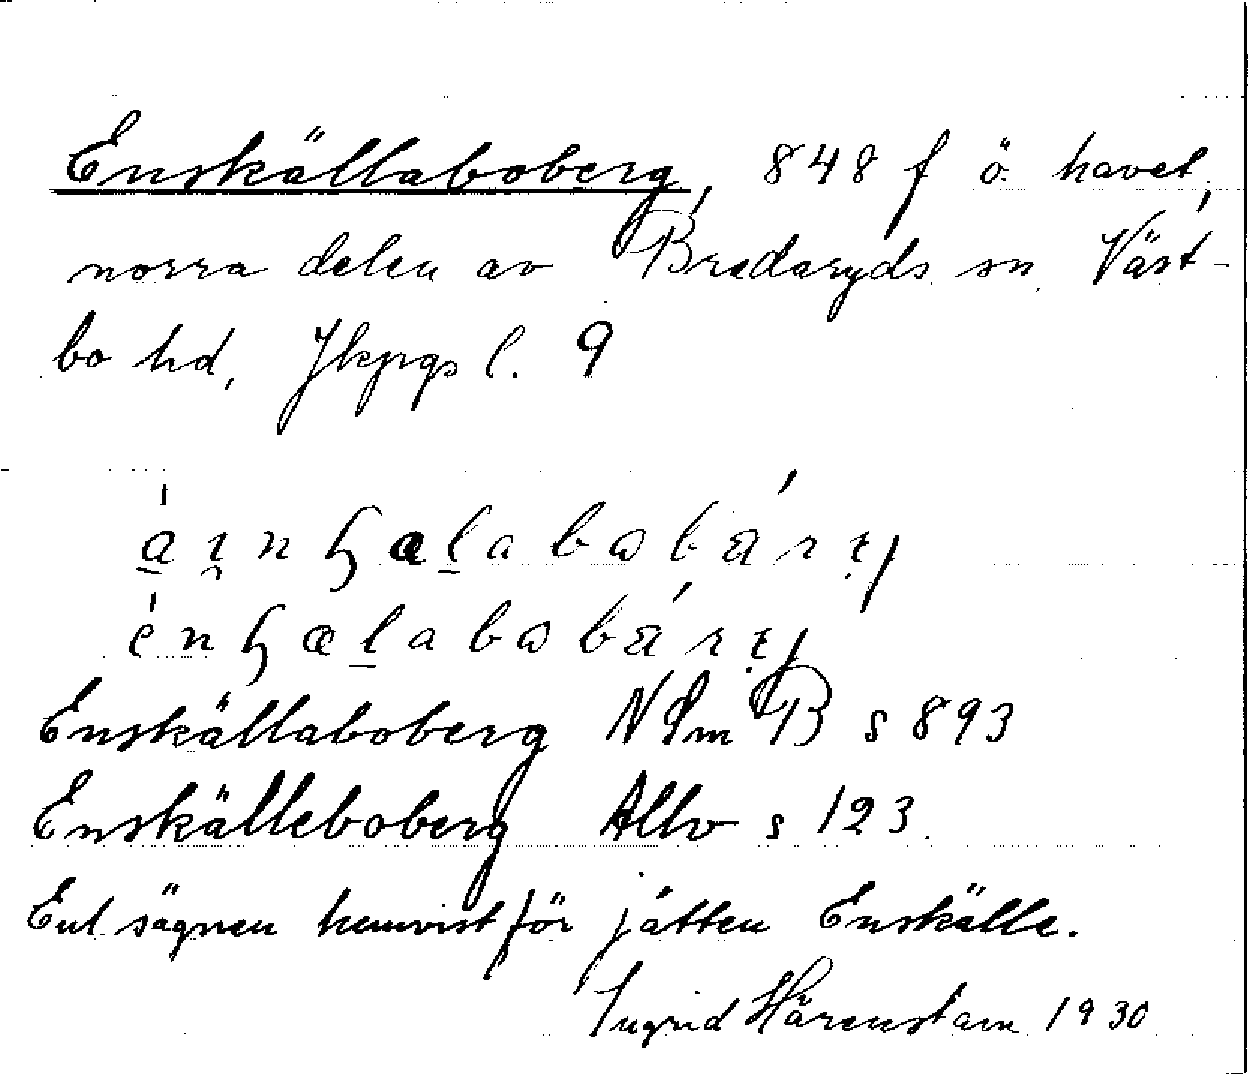 Enskällaboberg, 848 f ö. havet,
norra delen av Bredaryds sn, Väst-
bo hd, Jkpgs l. 9
Enskällaboberg NSm B s 893
Enskälleboberg Allv s 123.
Enl sägnen hemvist för jätten Enskälle.
Ingrid Härenstam 1930